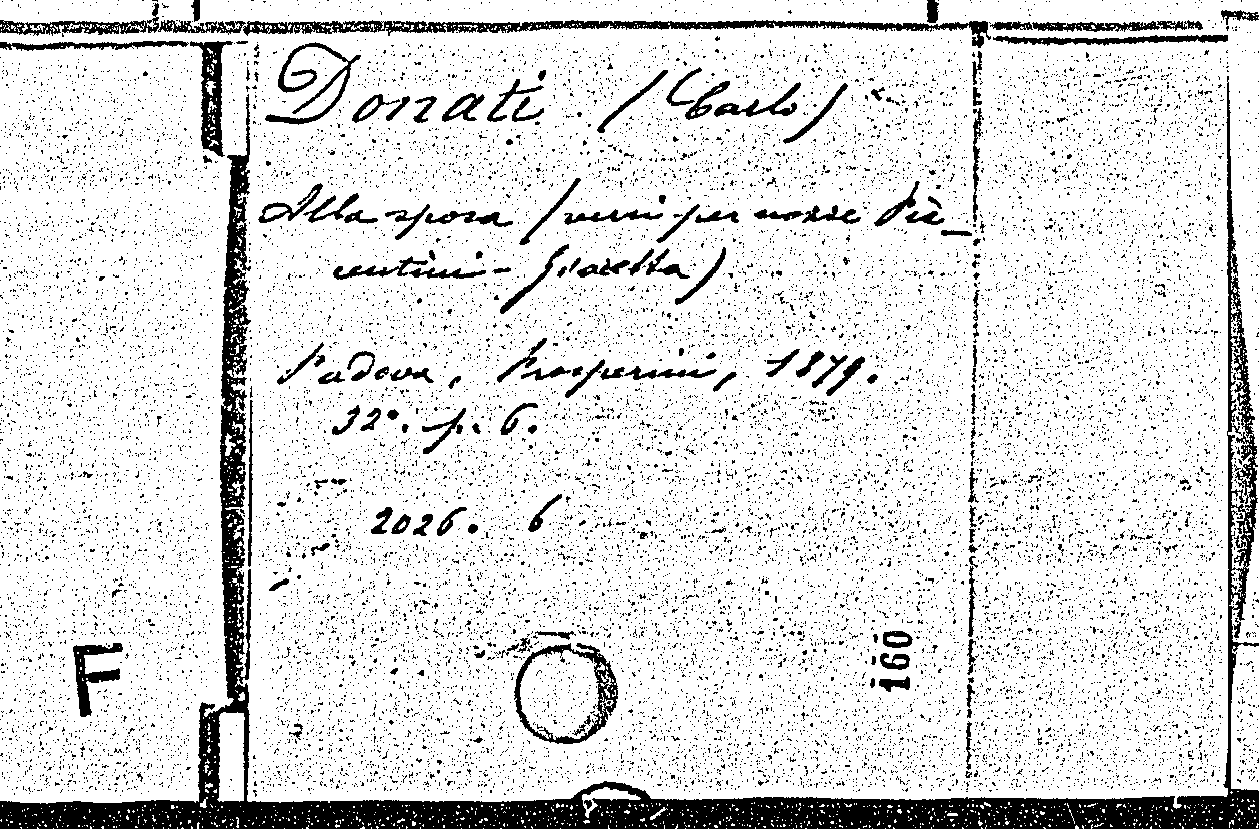 Donati (Carlo)
Alla sposa (versi per nozze Pia_
centini-
Padova, Prosperini, 1879.
32°. p. 6.
2026. 6
F
160